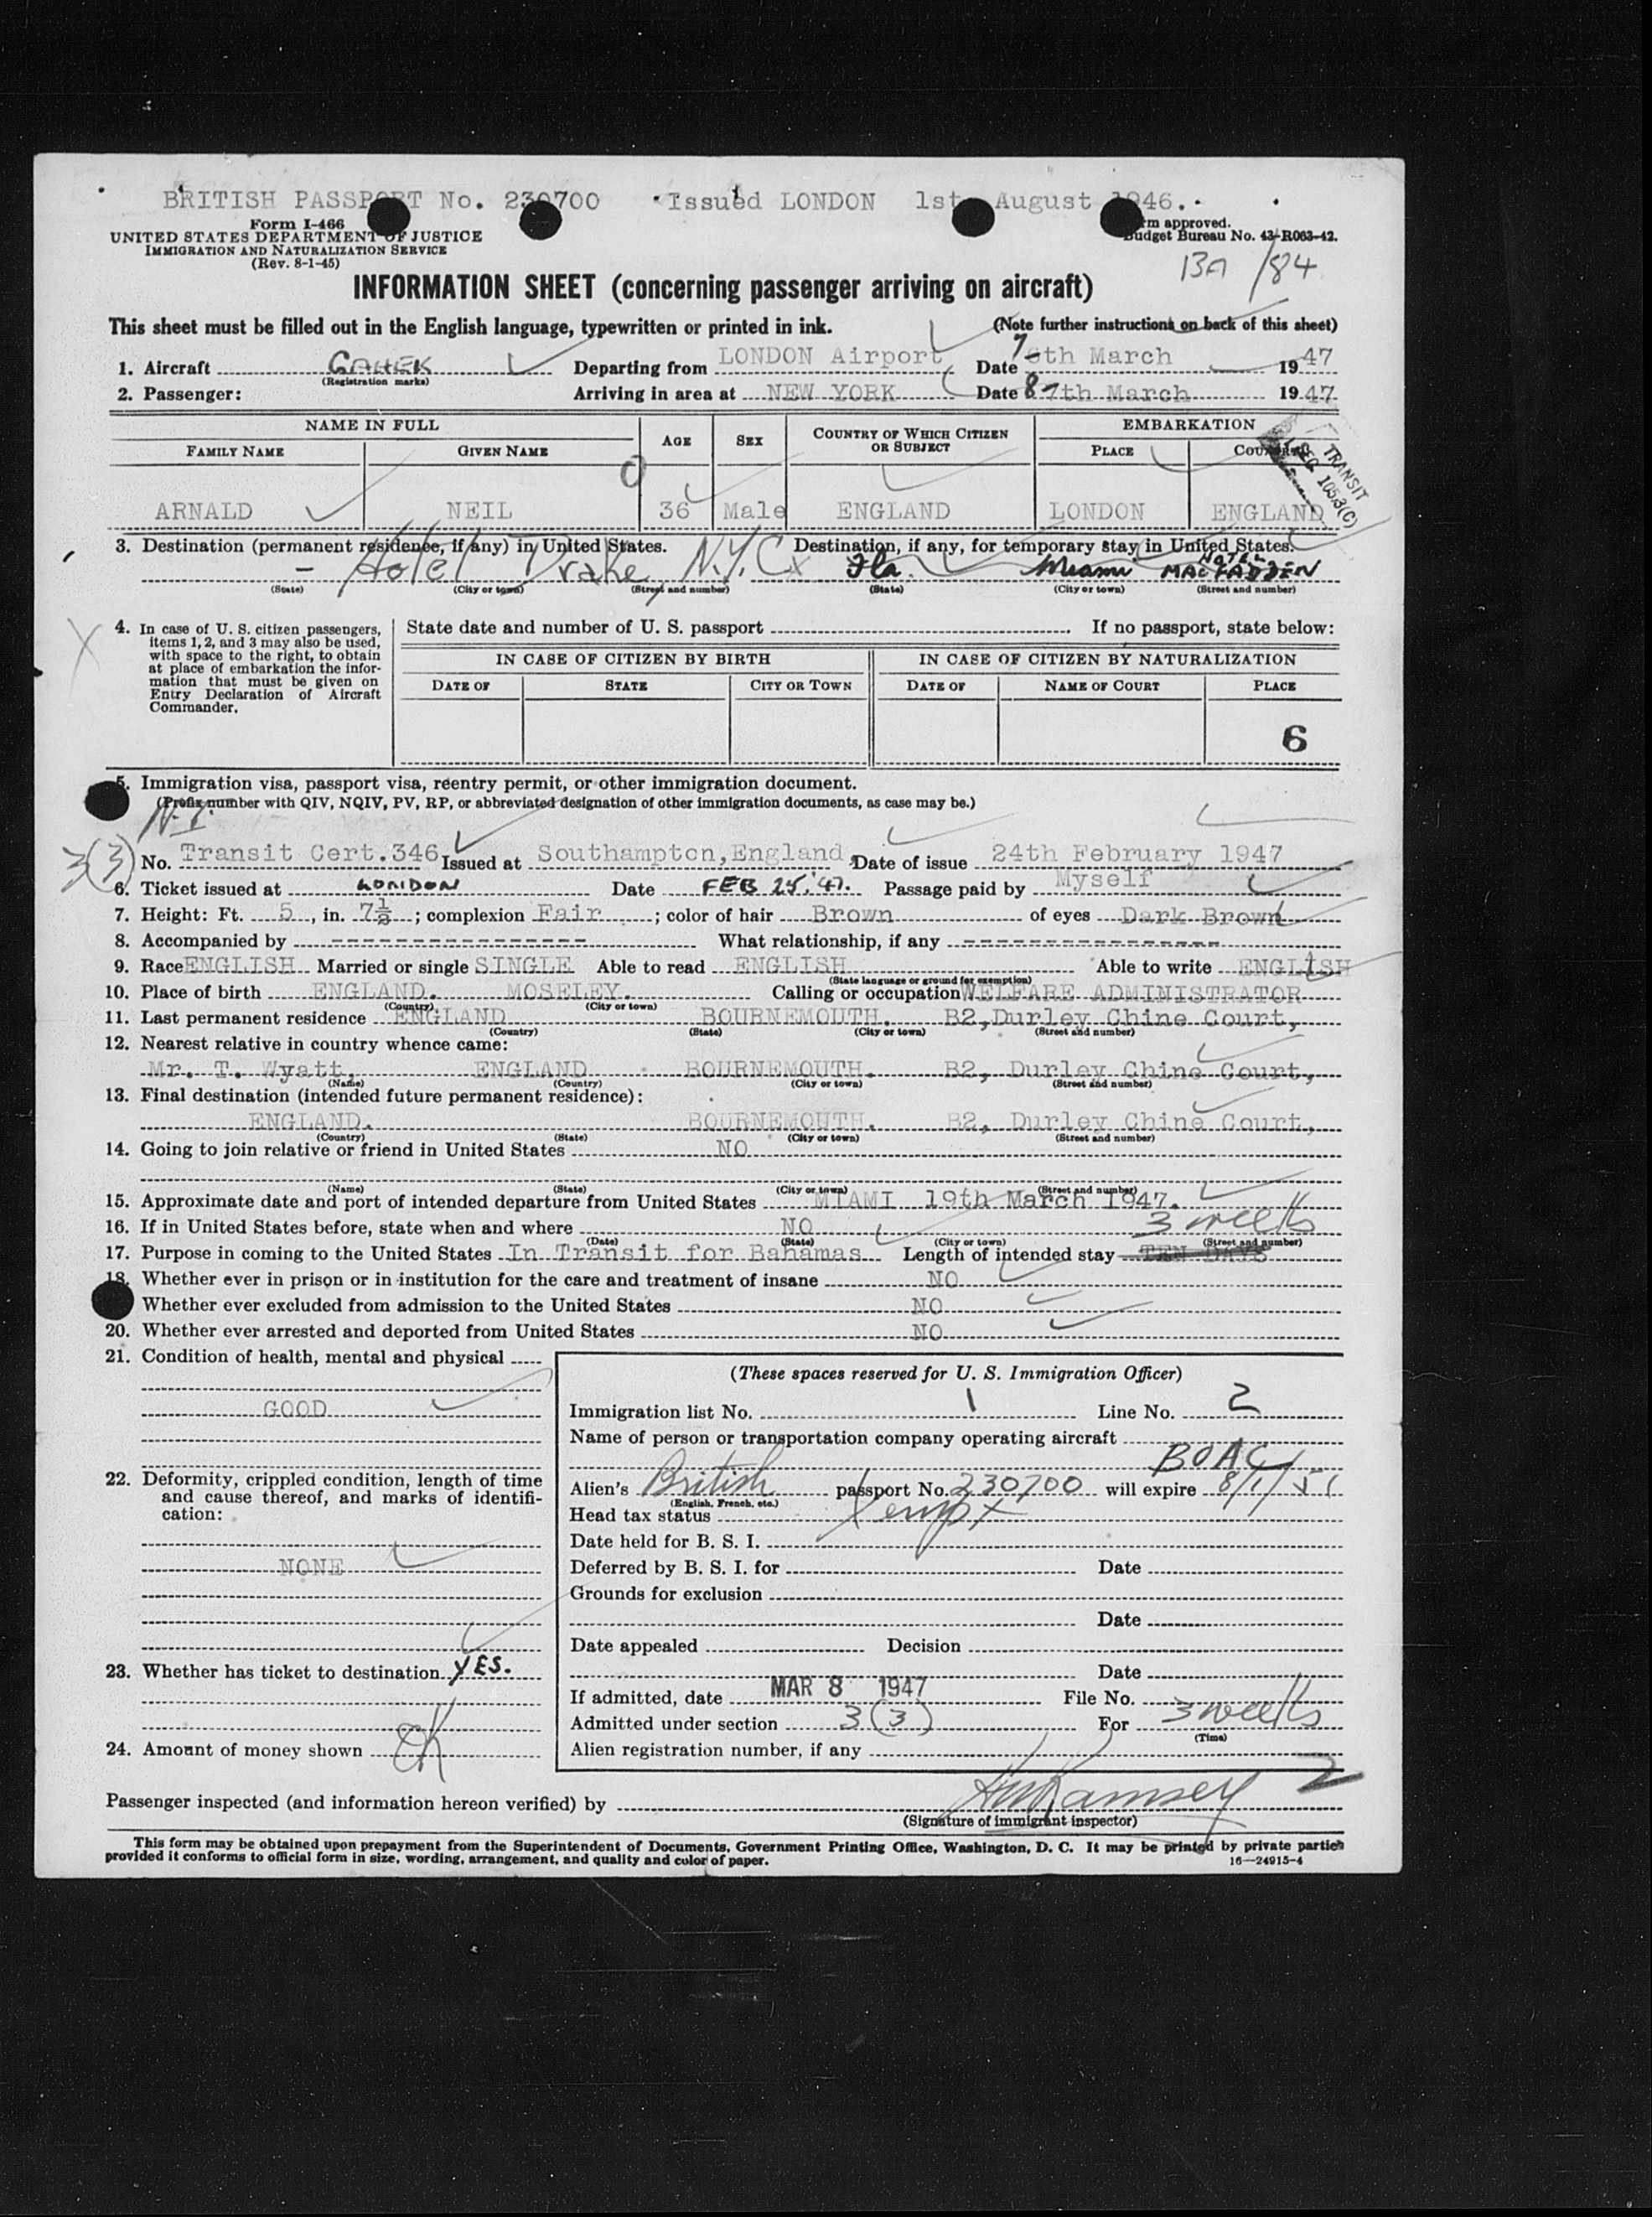 BRITISH PASSPORT No. 230700 Issued LONDON 1st August 1946.
Form I-466
UNITED STATES DEPARTMENT OF JUSTICE
IMMIGRATION AND NATURALIZATION SERVICE
(Rev. 8-1-45)
Form approved.
Budget Bureau No. 43-R063-42.
BA /84
INFORMATION SHEET (concerning passenger arriving on aircraft)
This sheet must be filled out in the English language, typewritten or printed in ink. (Note further instructions on back of this sheet)
1. Aircraft GAHEK Departing from LONDON Airport Date 7th March 1947
(Registration marks)
2. Passenger: Arriving in area at NEW YORK Date 8 7th March 1947
NAME IN FULL AGE SEX COUNTRY OF WHICH CITIZEN OR SUBJECT EMBARKATION
FAMILY NAME GIVEN NAME PLACE COUNTRY
TRANSIT
SEC 105.3(C)
ARNALD NEIL 36 Male ENGLAND LONDON ENGLAND
3. Destination (permanent residence, if any) in United States. Destination, if any, for temporary stay in United States.
– Hotel Drake N.Y.C. Fla. Miami HOTEL MACFADDEN
(State) (City or town) (Street and number) (State) (City or town) (Street and number)
4. In case of U. S. citizen passengers, items 1, 2, and 3 may also be used, with space to the right, to obtain at place of embarkation the information that must be given on Entry Declaration of Aircraft Commander.
State date and number of U. S. passport If no passport, state below:
IN CASE OF CITIZEN BY BIRTH IN CASE OF CITIZEN BY NATURALIZATION
DATE OF STATE CITY OR TOWN DATE OF NAME OF COURT PLACE
6
5. Immigration visa, passport visa, reentry permit, or other immigration document.
(Prefix number with QIV, NQIV, PV, RP, or abbreviated designation of other immigration documents, as case may be.)
3(3) No. Transit Cert.346 Issued at Southampton, England Date of issue 24th February 1947
6. Ticket issued at LONDON Date FEB 25.'47. Passage paid by Myself
7. Height: Ft. 5, in. 7½; complexion Fair; color of hair Brown of eyes Dark Brown
8. Accompanied by ---------------- What relationship, if any ----------------
9. Race ENGLISH Married or single SINGLE Able to read ENGLISH Able to write ENGLISH
(State language or ground for exemption)
10. Place of birth ENGLAND. MOSELEY. Calling or occupation WELFARE ADMINISTRATOR
(Country) (City or town)
11. Last permanent residence ENGLAND BOURNEMOUTH. B2, Durley Chine Court,
(Country) (State) (City or town) (Street and number)
12. Nearest relative in country whence came:
Mr. T. Wyatt, ENGLAND BOURNEMOUTH. B2, Durley Chine Court,
(Name) (Country) (City or town) (Street and number)
13. Final destination (intended future permanent residence):
ENGLAND. BOURNEMOUTH. B2, Durley Chine Court,
(Country) (State) (City or town) (Street and number)
14. Going to join relative or friend in United States NO
(Name) (State) (City or town) (Street and number)
15. Approximate date and port of intended departure from United States MIAMI 19th March 1947.
16. If in United States before, state when and where NO 3 weeks
(Date) (State) (City or town) (Street and number)
17. Purpose in coming to the United States In Transit for Bahamas Length of intended stay TEN DAYS
18. Whether ever in prison or in institution for the care and treatment of insane NO
Whether ever excluded from admission to the United States NO
20. Whether ever arrested and deported from United States NO
21. Condition of health, mental and physical
GOOD
22. Deformity, crippled condition, length of time and cause thereof, and marks of identification:
NONE
23. Whether has ticket to destination YES.
24. Amount of money shown OK
(These spaces reserved for U. S. Immigration Officer)
Immigration list No. 1 Line No. 2
Name of person or transportation company operating aircraft
BOAC
Alien's British passport No. 230700 will expire 8/1/51
(English, French, etc.)
Head tax status Xempt
Date held for B. S. I.
Deferred by B. S. I. for Date
Grounds for exclusion
Date
Date appealed Decision
Date
If admitted, date MAR 8 1947 File No.
Admitted under section 3(3) For 3 weeks
(Time)
Alien registration number, if any
Passenger inspected (and information hereon verified) by Ramsey 2
(Signature of immigrant inspector)
This form may be obtained upon prepayment from the Superintendent of Documents, Government Printing Office, Washington, D. C. It may be printed by private parties
provided it conforms to official form in size, wording, arrangement, and quality and color of paper. 16—24915-4